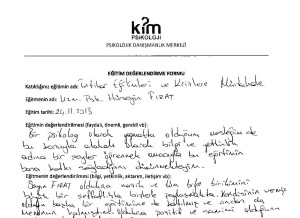 kim
PSİKOLOJİ
PSİKOLOJİK DANIŞMANLIK MERKEZİ
EĞİTİM DEĞERLENDİRME FORMU
Katıldığınız eğitimin adı: İntihar Eğilimleri ve Krizlere Müdahale
Eğitmenin adı: Uzm. Psk. Hüseyin FIRAT
Eğitim tarihi: 24.11.2013
Eğitimin değerlendirmesi (fayda, önemi, gerekli vb):
Bir psikolog olarak yapmakta olduğum mesleğimde
bu konuyla alakalı olarak bilgi ve yetkinlik
adına bir şeyler öğrenmek amacıyla bu eğitimin
bana katkı sağladığını düşünmekteyim.
Eğitmenin değerlendirmesi (bilgi, yetkinlik, aktarım, iletişim vb):
Hüseyin FIRAT oldukça narin ve tüm bilgi birikimini
bizimle paylaşmakta. Kendisinin vermiş
olduğu başka bir eğitimine de katılmıştım ve ondan da
oldukça pozitif ve samimi olduğunu